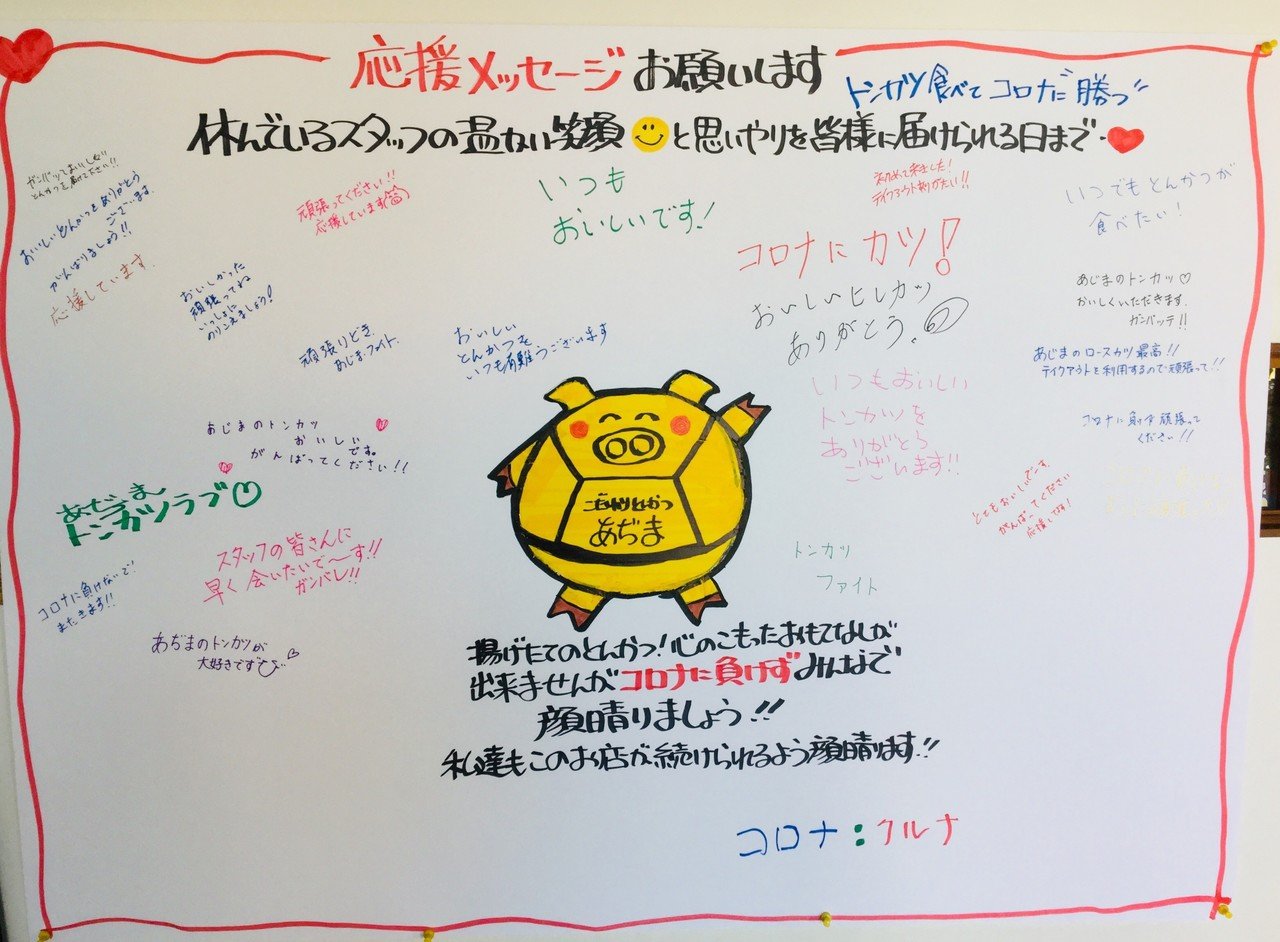 応援メッセージ お願いします
トンカツ食べて コロナに勝つ
休んでいるスタッフの温かい笑顔と思いやりを皆様に届けられる日まで
ガンバッておいしい
とんかつを届けて下さい!!
おいしいとんかつをありがとう
ございます。
がんばりましょう!!
応援しています。
頑張ってください!!
応援しています
いつも
おいしいです!
初めて来ました!
テイクアウトありがたい!!
いつでもとんかつが
食べたい!
コロナにカツ!
おいしいヒレカツ
ありがとう。
あじまのトンカツ♡
おいしくいただきます。
ガンバッテ!!
おいしかった
頑張ってね
いっしょに
のりこえましょう!
頑張りどき。
あじまファイト.
おいしい
とんかつを
いつも有難うございます
あじまのロースカツ最高!!
テイクアウトを利用するので頑張って!!
いつもおいしい
トンカツを
ありがとう
ございます!!
コロナに負けず頑張って
ください!!
あじまのトンカツ
おいしい
です。
がんばってください!!
あぢま
トンカツラブ
とてもおいしいでーす。
がんばってください
応援してます!
とんかつ
あぢま
スタッフの皆さんに
早く会いたいで〜す!!
ガンバレ!!
トンカツ
ファイト
コロナに負けないで!
またきます!!
あぢまのトンカツが
大好きです
揚げたてのとんかつ!心のこもったおもてなしが
出来ませんがコロナに負けずみんなで
顔晴りましょう!!
私達もこのお店が続けられるよう顔晴ります!!
コロナ:クルナ